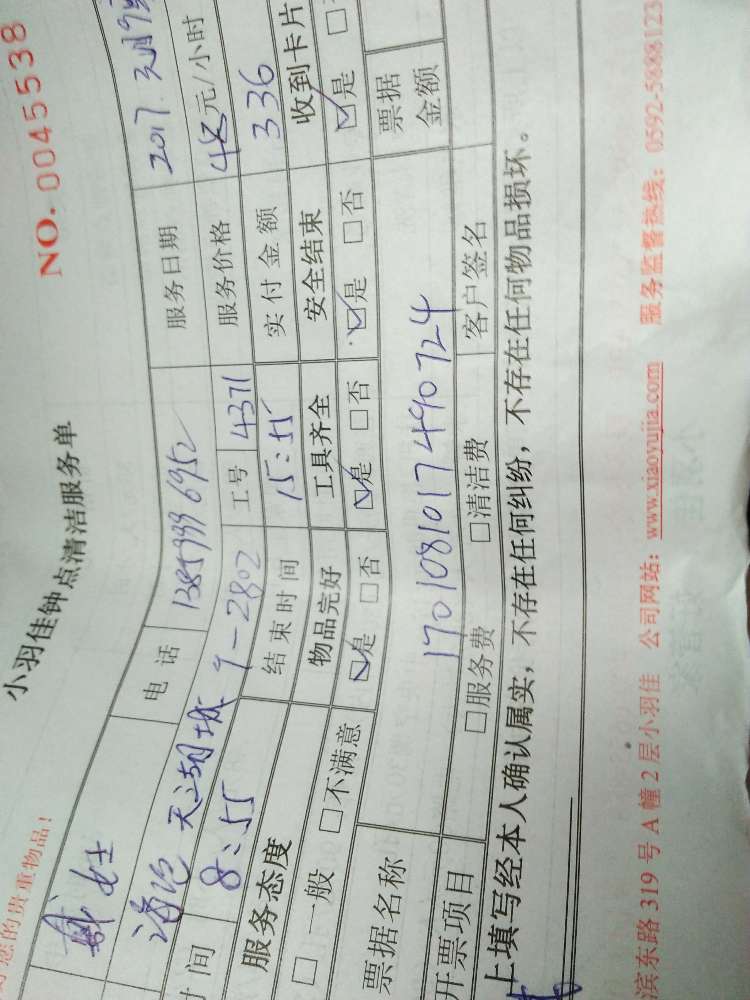 NO. 0045538
小羽佳钟点清洁服务单
您的贵重物品！
电话 服务日期 2017.
海沧天湖城 9-2802 工号 4371 服务价格 48元/小时
时间 8:55 结束时间 15:55 实付金额 336
服务态度 物品完好 工具齐全 安全结束 收到卡片
□一般 □不满意 ☑是 □否 ☑是 □否 ☑是 □否 ☑是
票据名称 票据金额
1701081017490724
开票项目 □服务费 □清洁费 客户签名
上填写经本人确认属实，不存在任何纠纷，不存在任何物品损坏。
滨东路319号A幢2层小羽佳 公司网站：www.xiaoyujia.com 服务监督热线：0592-5888123